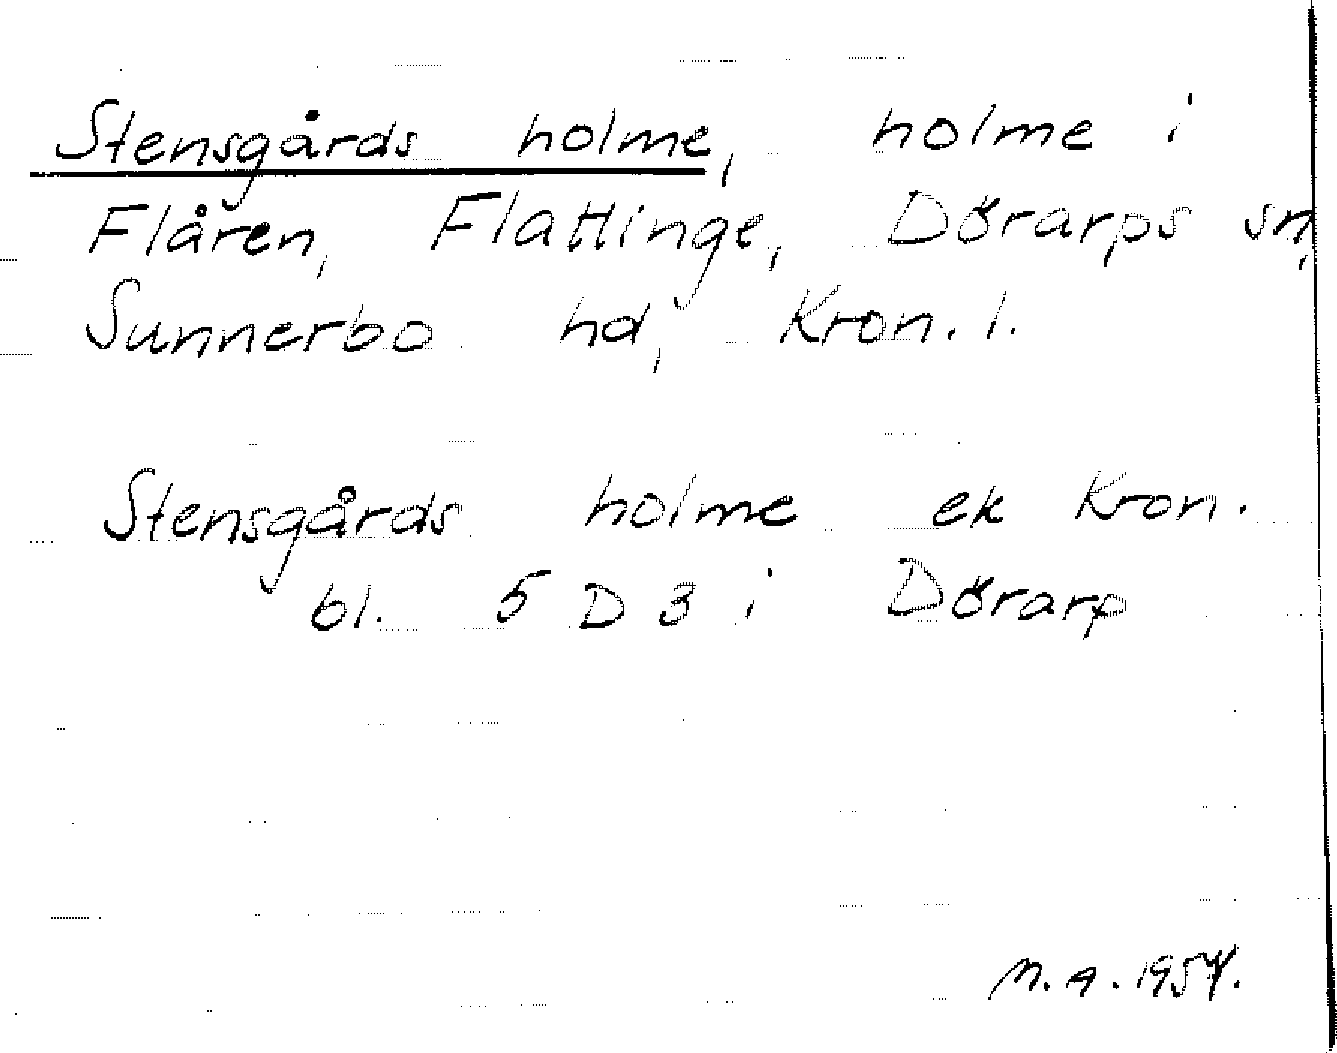 Stensgårds holme, holme i
Flåren, Flattinge, Dörarps sn,
Sunnerbo hd, Kron. l.
Stensgårds holme ek Kron.
bl. 5 D 3 i Dörarp
M. A. 1954.